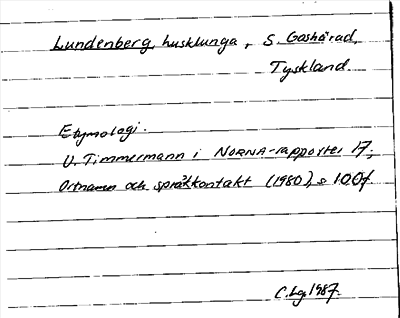 Lundenberg, husklunga, S. Goshärad,
Tyskland.
Etymologi.
U. Timmermann i NORNA-rapporter 17,
Ortnamn och språkkontakt (1980), s 100f.
C.Lg. 1987.